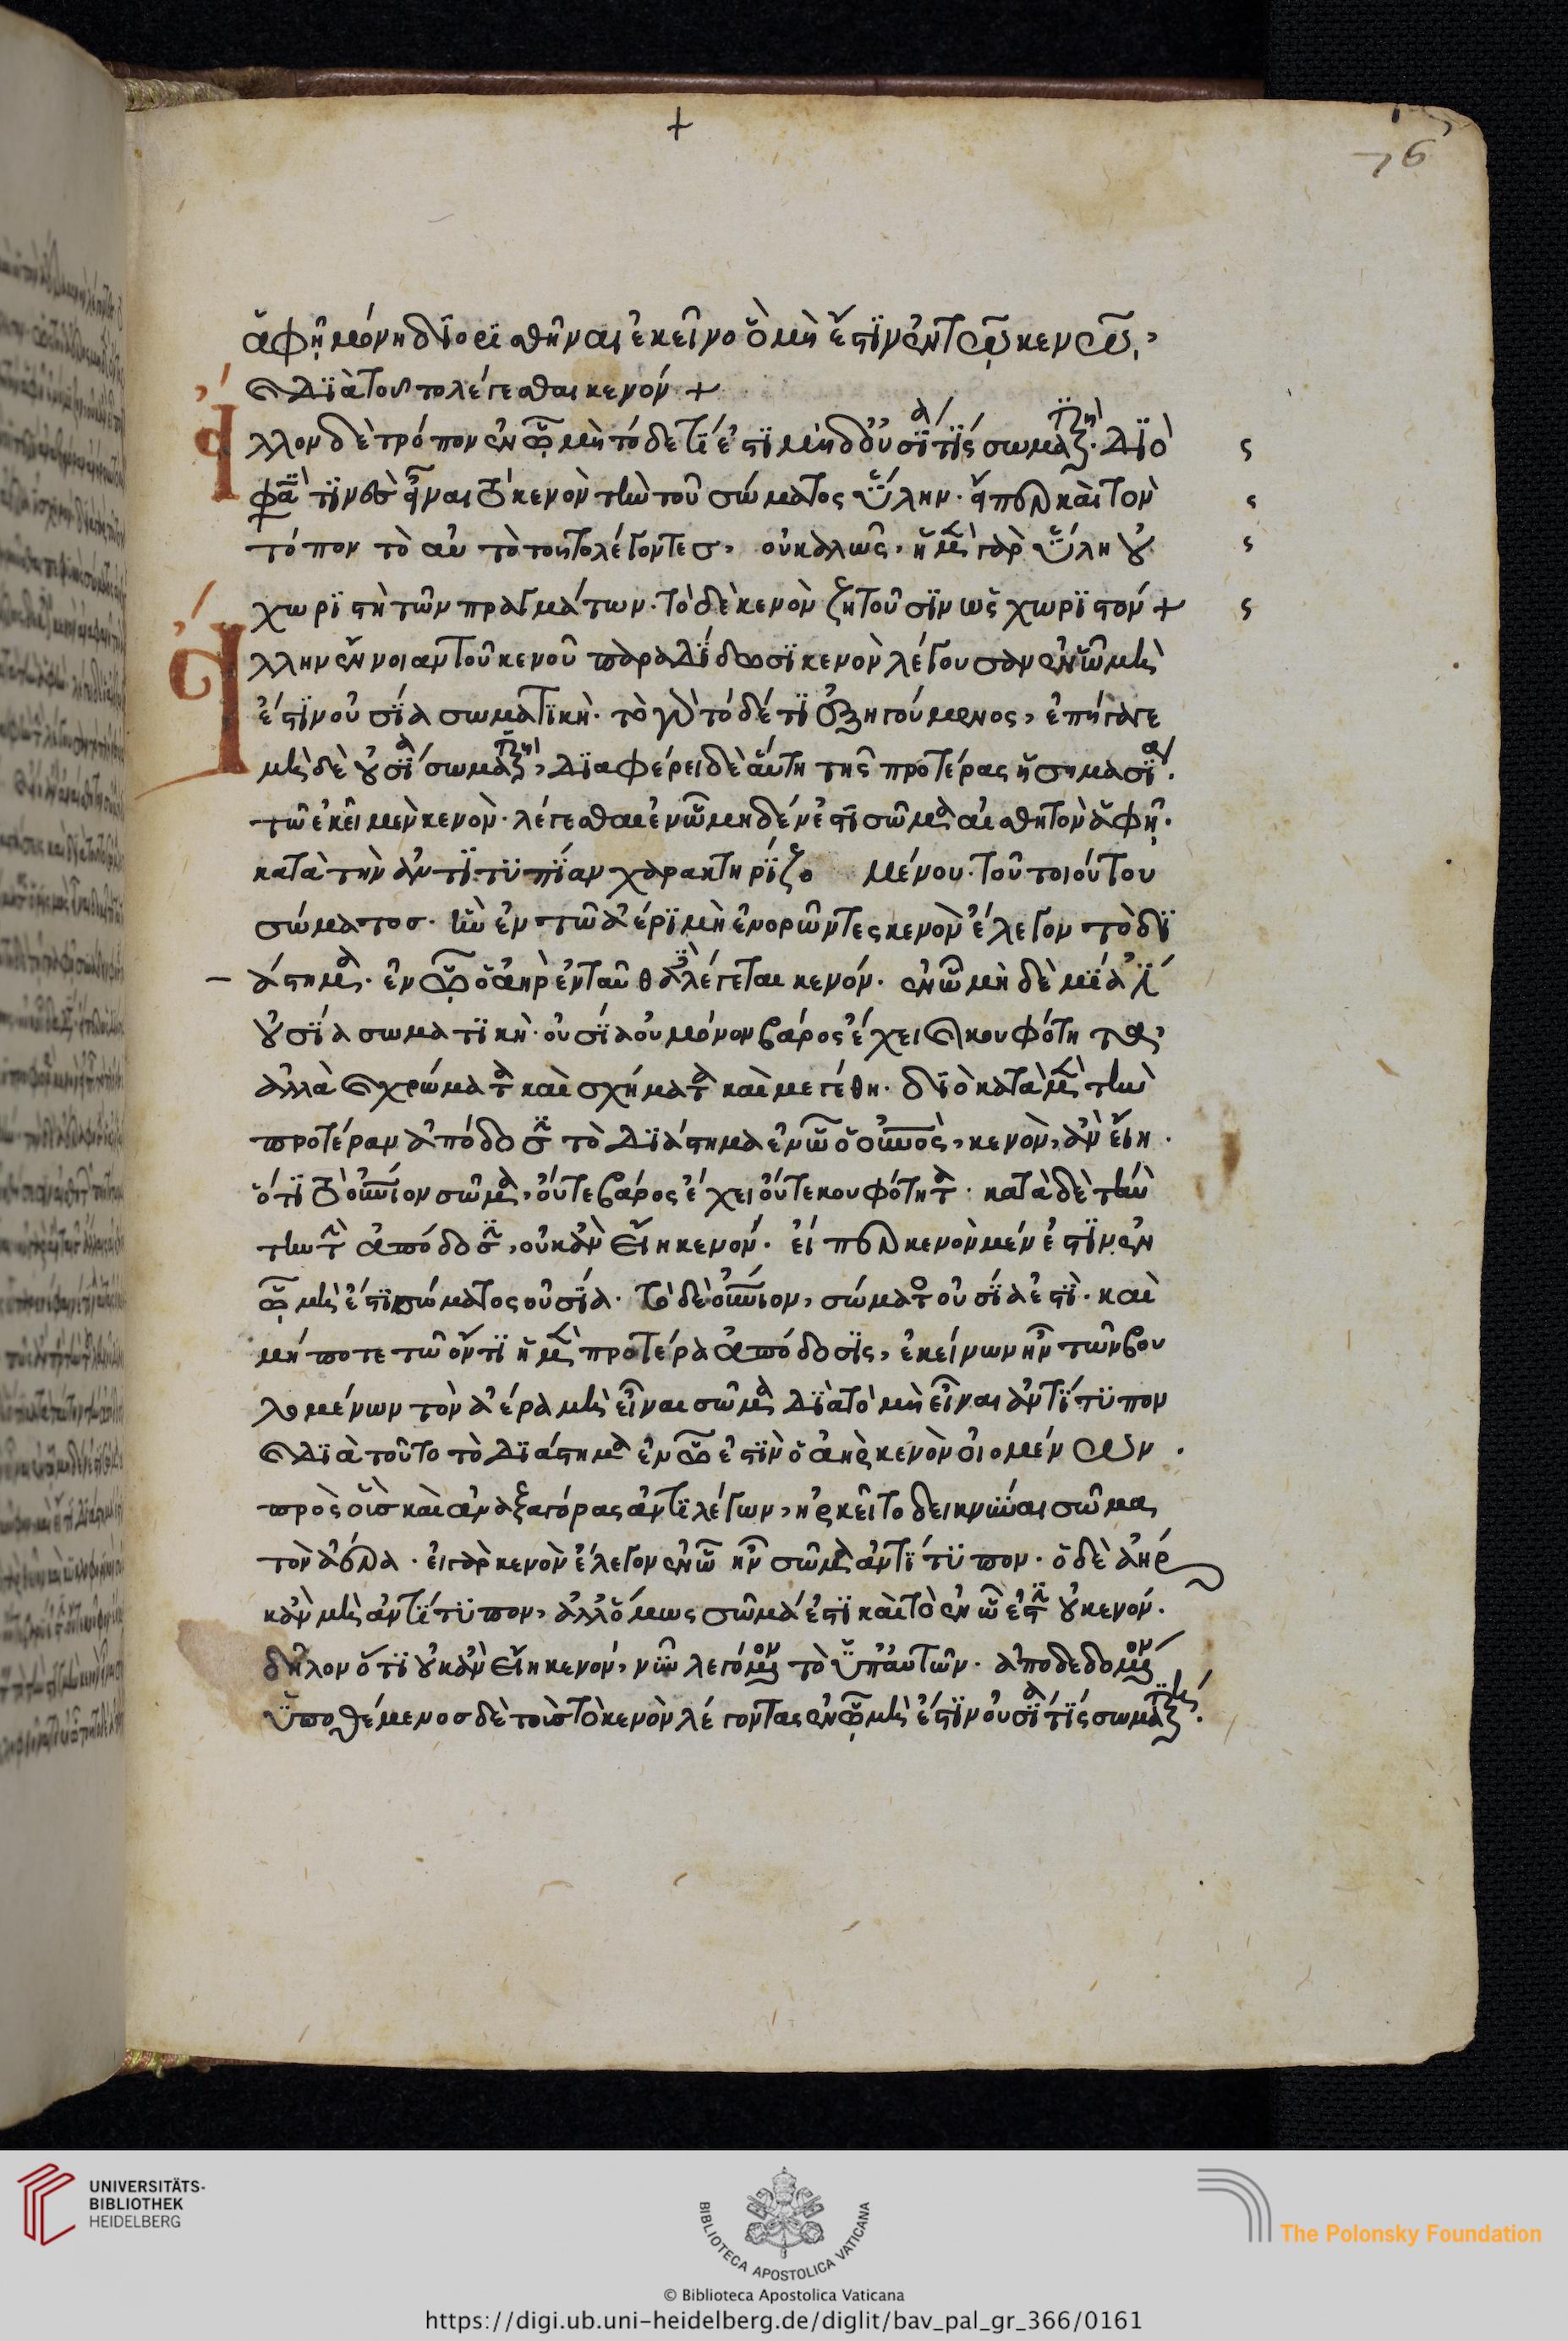 ἁφῇ μόνῃ διορισθῆναι ἐκεῖνο ὃ μὴ ἔστιν ἐν τῷ κενῷ,
καὶ διὰ τοῦτο λέγεσθαι κενόν +
Ἄλλον δὲ τρόπον ἐν ᾧ μὴ τόδε τί ἐστι μηδ' οὐσία τις σωματική. διὸ
φασί τινες εἶναι τὸ κενὸν τὴν τοῦ σώματος ὕλην. οἵπερ καὶ τὸν
τόπον τὸ αὐτὸ τοῦτο λέγοντες, οὐ καλῶς, ἡ μὲν γὰρ ὕλη οὐ
χωριστὴ τῶν πραγμάτων. τὸ δὲ κενὸν ζητοῦσιν ὡς χωριστόν +
Ἄλλην ἔννοιαν τοῦ κενοῦ παραδίδωσι κενὸν λέγουσαν ἐν ᾧ μὴ
ἔστιν οὐσία σωματική. τὸ γὰρ τόδε τι ἐξηγούμενος, ἐπήγαγε
μὴ δὲ οὐσία σωματική, διαφέρει δὲ αὕτη τῆς προτέρας ἡ σημασία.
τῷ ἐκεῖ μὲν κενὸν. λέγεσθαι ἐν ᾧ μηδέν ἐστι σῶμα αἰσθητὸν ἁφῇ.
κατὰ τὴν ἀντιτυπίαν χαρακτηριζο μένου. τοῦ τοιούτου
σώματος. ἣν ἐν τῷ ἀέρι μὴ ἐνορῶντες κενὸν ἔλεγον τὸ δι
άστημα. ἐν ᾧ ὁ ἀὴρ ἐνταῦθα δὲ λέγεται κενόν. ἐν ᾧ μὴ δὲ μία ἐστὶ
οὐσία σωματική. οὐσία οὐ μόνον βάρος ἔχει καὶ κουφότητας
ἀλλὰ καὶ χρώματα καὶ σχήματα καὶ μεγέθη. διὸ κατὰ μὲν τὴν
προτέραν ἀπόδοσιν τὸ διάστημα ἐν ᾧ ὁ οὐρανὸς, κενὸν, ἂν εἴη.
ὅτι τὸ οὐράνιον σῶμα, οὔτε βάρος ἔχει οὔτε κουφότητα. κατὰ δὲ ταύ
την τὴν ἀπόδοσιν, οὐκ ἂν εἴη κενόν. εἴπερ κενὸν μέν ἐστιν ἐν
ᾧ μὴ ἔστι σώματος οὐσία. τὸ δὲ οὐράνιον, σώματος οὐσία ἐστὶ. καὶ
μήποτε τῷ ὄντι ἡ μὲν προτέρα ἀπόδοσις, ἐκείνων ἦν τῶν βου
λομένων τὸν ἀέρα μὴ εἶναι σῶμα διὰ τὸ μὴ εἶναι ἀντίτυπον
καὶ διὰ τοῦτο τὸ διάστημα ἐν ᾧ ἐστὶν ὁ ἀὴρ κενὸν οἰομένων.
πρὸς οὓς καὶ ἀναξαγόρας ἀντιλέγων, ἠρκεῖτο δεικνύναι σῶμα
τὸν ἀέρα. εἰ γὰρ κενὸν ἔλεγον ἐν ᾧ ἦν σῶμα ἀντίτυπον. ὁ δὲ ἀὴρ
κἂν μὴ ἀντίτυπον, ἀλλ' ὅμως σῶμά ἐστι καὶ τὸ ἐν ᾧ ἐστὶν οὐ κενόν.
δῆλον ὅτι οὐκ ἂν εἴη κενόν, νῦν λεγόμενον τὸ ὑπ' αὐτῶν. ἀποδεδομένον
ὑποθέμενος δὲ τοὺς τὸ κενὸν λέγοντας ἐν ᾧ μὴ ἔστιν οὐσία τίς σωματική.
76
UNIVERSITÄTS-
BIBLIOTHEK
HEIDELBERG
BIBLIOTECA APOSTOLICA VATICANA
© Biblioteca Apostolica Vaticana
The Polonsky Foundation
https://digi.ub.uni-heidelberg.de/diglit/bav_pal_gr_366/0161